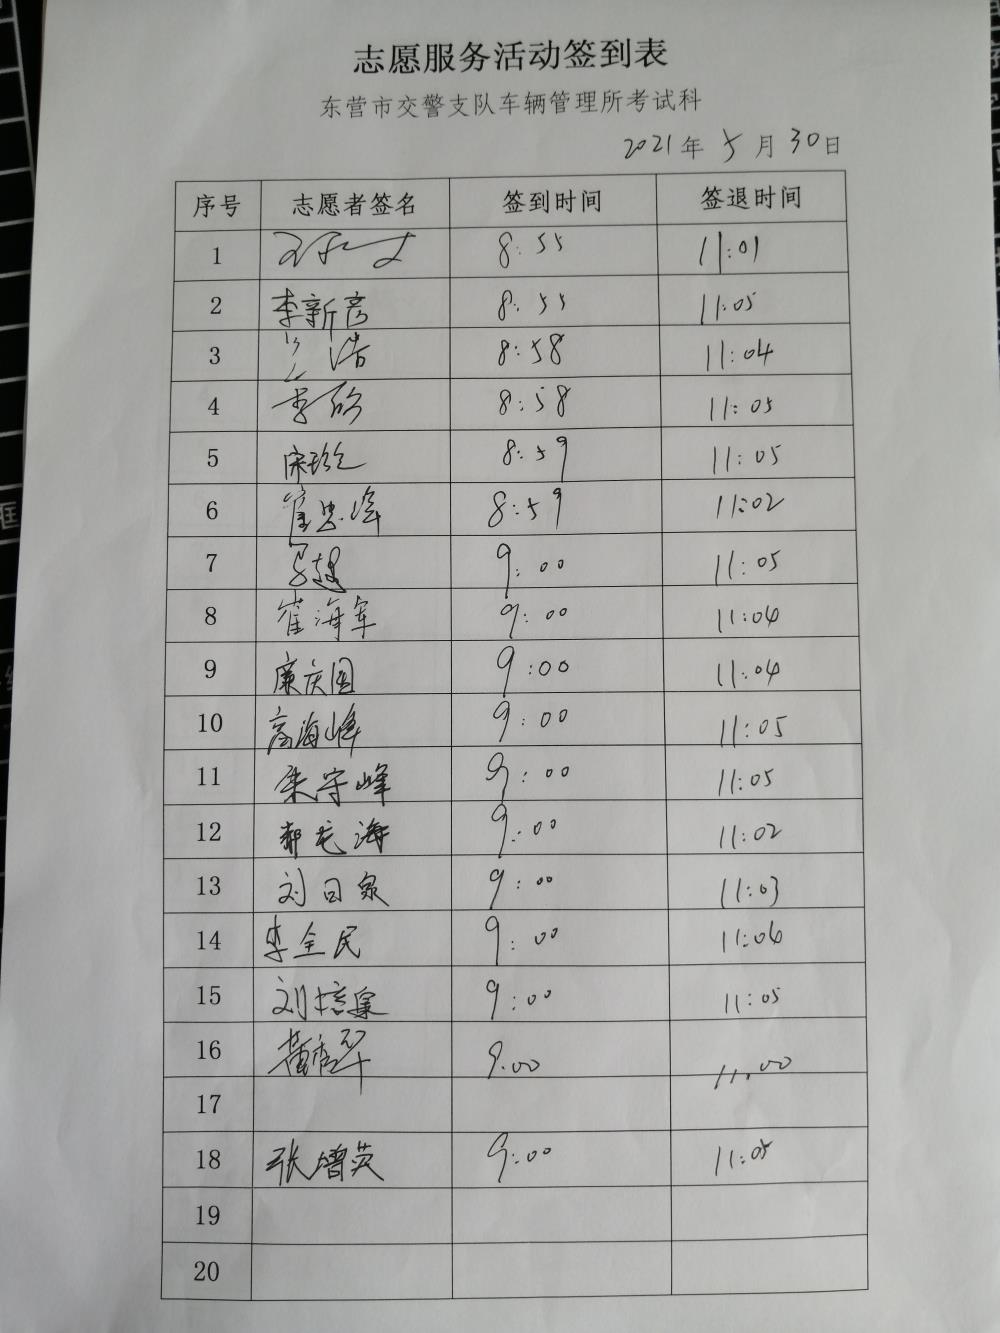 志愿服务活动签到表
东营市交警支队车辆管理所考试科
2021年5月30日
序号 志愿者签名 签到时间 签退时间
1 8:55 11:01
2 李新彦 8:55 11:05
3 浩 8:58 11:04
4 李 8:58 11:05
5 宋珍 8:59 11:05
6 崔忠 8:59 11:02
7 9:00 11:05
8 崔海军 9:00 11:04
9 廉庆国 9:00 11:04
10 高海峰 9:00 11:05
11 朱守峰 9:00 11:05
12 郝海 9:00 11:02
13 刘日泉 9:00 11:03
14 李全民 9:00 11:04
15 刘培 9:00 11:05
16 董 9.00 11.00
17
18 张增英 9:00 11:05
19
20